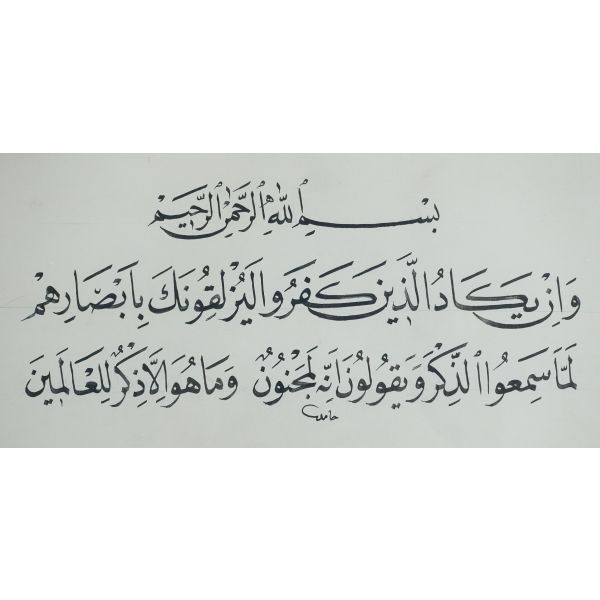 بِسْمِ اللّٰهِ الرَّحْمٰنِ الرَّحِيمِ
وَاِنْ يَكَادُ الَّذِينَ كَفَرُوا لَيُزْلِقُونَكَ بِاَبْصَارِهِمْ
لَمَّا سَمِعُوا الذِّكْرَ وَيَقُولُونَ اِنَّهُ لَمَجْنُونٌ وَمَا هُوَ اِلَّا ذِكْرٌ لِلْعَالَمِينَ
حامد